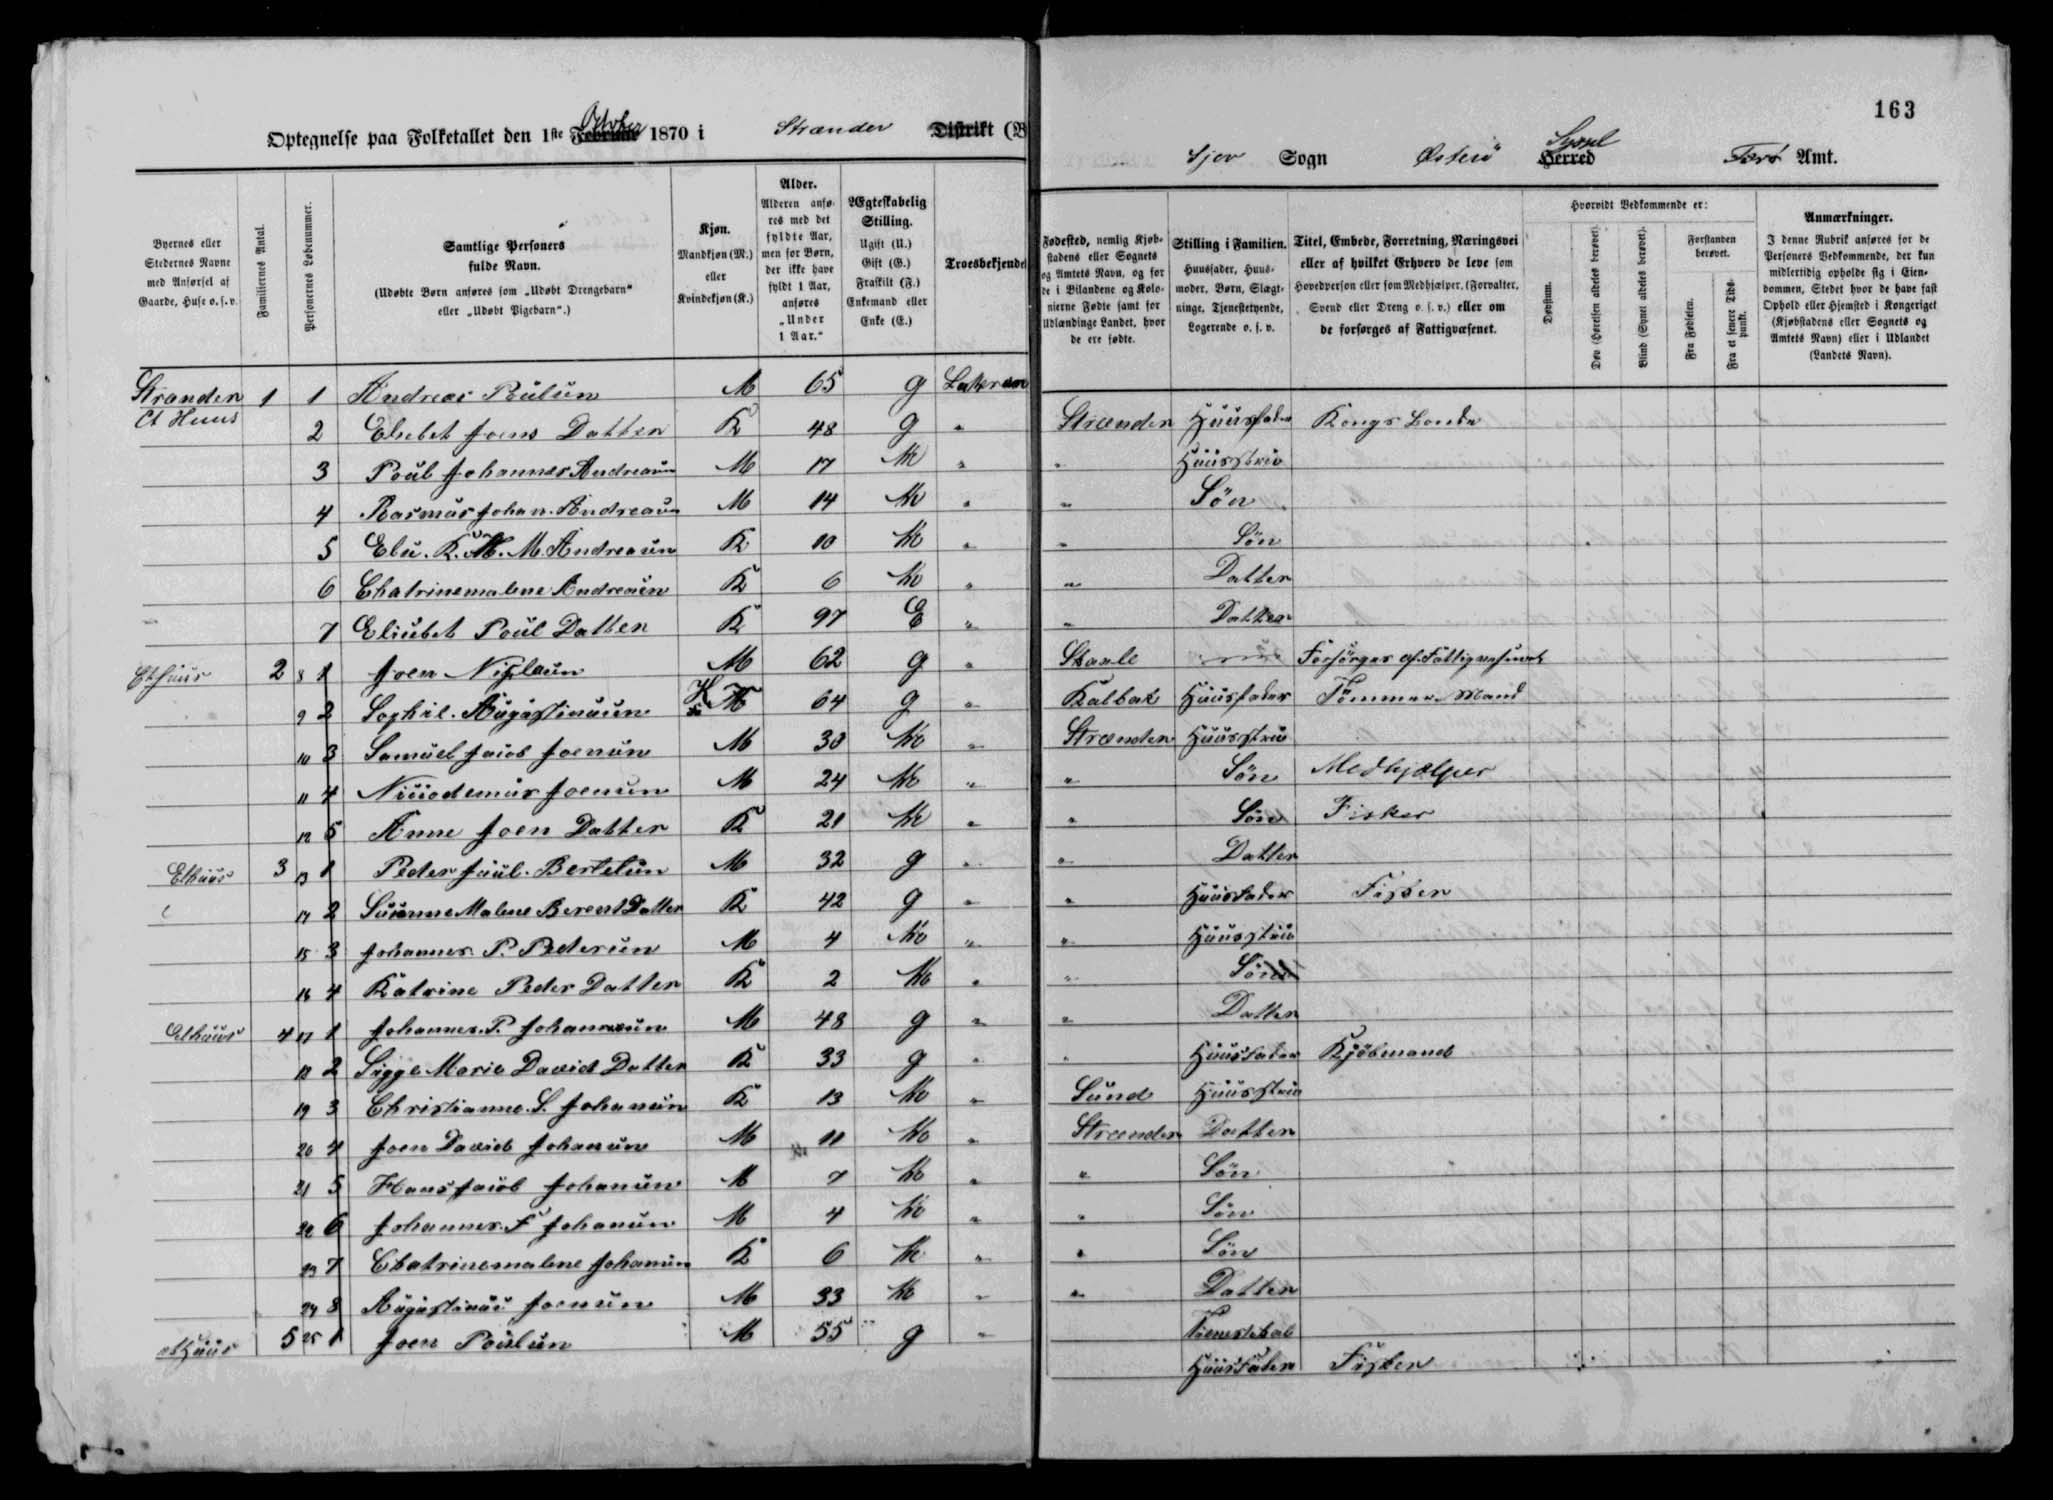 163
Optegnelse paa Folketallet den 1ste Februar October 1870 i Strænder Distrikt (B
Sjov Sogn Østerö Herred Syssel Færö Amt.
Byernes eller Stedernes Navne med Anførsel af Gaarde, Huse o. s. v.
Familiernes Antal.
Personernes Løbenummer.
Samtlige Personers fulde Navn.
(Udøbte Børn anføres som „Udøbt Drengebarn“ eller „Udøbt Pigebarn“.)
Kjøn.
Mandkjøn (M.) eller Kvindekjøn (K.)
Alder.
Alderen anføres med det fyldte Aar, men for Børn, der ikke have fyldt 1 Aar, anføres „Under 1 Aar.“
Ægteskabelig Stilling.
Ugift (U.) Gift (G.) Fraskilt (F.) Enkemand eller Enke (E.)
Troesbekjende
Fødested, nemlig Kjøbstadens eller Sognets og Amtets Navn, og for de i Bilandene og Kolonierne Fødte samt for Udlændinge Landet, hvor de ere fødte.
Stilling i Familien.
Huusfader, Huusmoder, Børn, Slægtninge, Tjenestetyende, Logerende o. s. v.
Titel, Embede, Forretning, Næringsvei eller af hvilket Erhverv de leve som Hovedperson eller som Medhjælper, (Forvalter, Svend eller Dreng o. s. v.) eller om de forsørges af Fattigvæsenet.
Hvorvidt Vedkommende er:
Døvstum.
Døv (Hørelsen aldeles berøvet).
Blind (Synet aldeles berøvet).
Forstanden berøvet.
Fra Fødselen.
Fra et senere Tidspunkt.
Anmærkninger.
I denne Rubrik anføres for de Personers Vedkommende, der kun midlertidig opholde sig i Eiendommen, Stedet hvor de have fast Ophold eller Hjemsted i Kongeriget (Kjøbstadens eller Sognets og Amtets Navn) eller i Udlandet (Landets Navn).
Strander 1 1 Andreas Poulsen M 65 g
Et Huus 2 Elsebet Joens Datter K 48 g „ Strænder Huusfader Kongs Bonde
3 Poul Johannes Andreasen M 17 „ „ Huusstru
4 Rasmus Johan. Andreasen M 14 „ „ Sön
5 M. Andreasen K 10 „ „ Sön
6 Chatrinemalene Andreasen K 6 „ „ Datter
7 Elsebet Poul Datter K 97 E „ „ Datter
Et huus 2 8 1 Joen M 62 g „ Forsörges af Fattigvæsenet
9 2 Augustinusen K 64 g „ Kalbak Huusfader Tömmer Mand
10 3 Samuel Jacob Joensen M 30 „ Strænder Huusstru
11 4 Nicodemus Joensen M 24 „ „ Sön Medhjælper
12 5 Anne Joen Datter K 21 „ „ Sön Fisker
Et huus 3 13 1 Peder Juul. Bertelsen M 32 g „ „ Datter
14 2 Susanne Malene Berent Datter K 42 g „ „ Huusfader Fisker
15 3 Johannes P. Pedersen M 4 „ „ Huusstru
16 4 Katrine Peder Datter K 2 „ „ Sön
Et huus 4 17 1 Johannes. P. Johannesen M 48 g „ „ Datter
18 2 Sigge Marie David Datter K 33 g „ „ Huusfader Kjöbmand
19 3 Christianne. S. Johansen K 13 „ Sund Huusstru
20 4 Joen David Johansen M 11 „ Strænder Datter
21 5 Hans Jacob Johansen M 7 „ „ Sön
22 6 Johannes. F Johansen M 4 „ „ Sön
23 7 Chatrinemalene Johansen K 6 „ „ Sön
24 8 Augustinus Joensen M 33 „ „ Datter
et Huus 5 25 1 Joen Poulsen M 55 g „
Huusfader Fisker